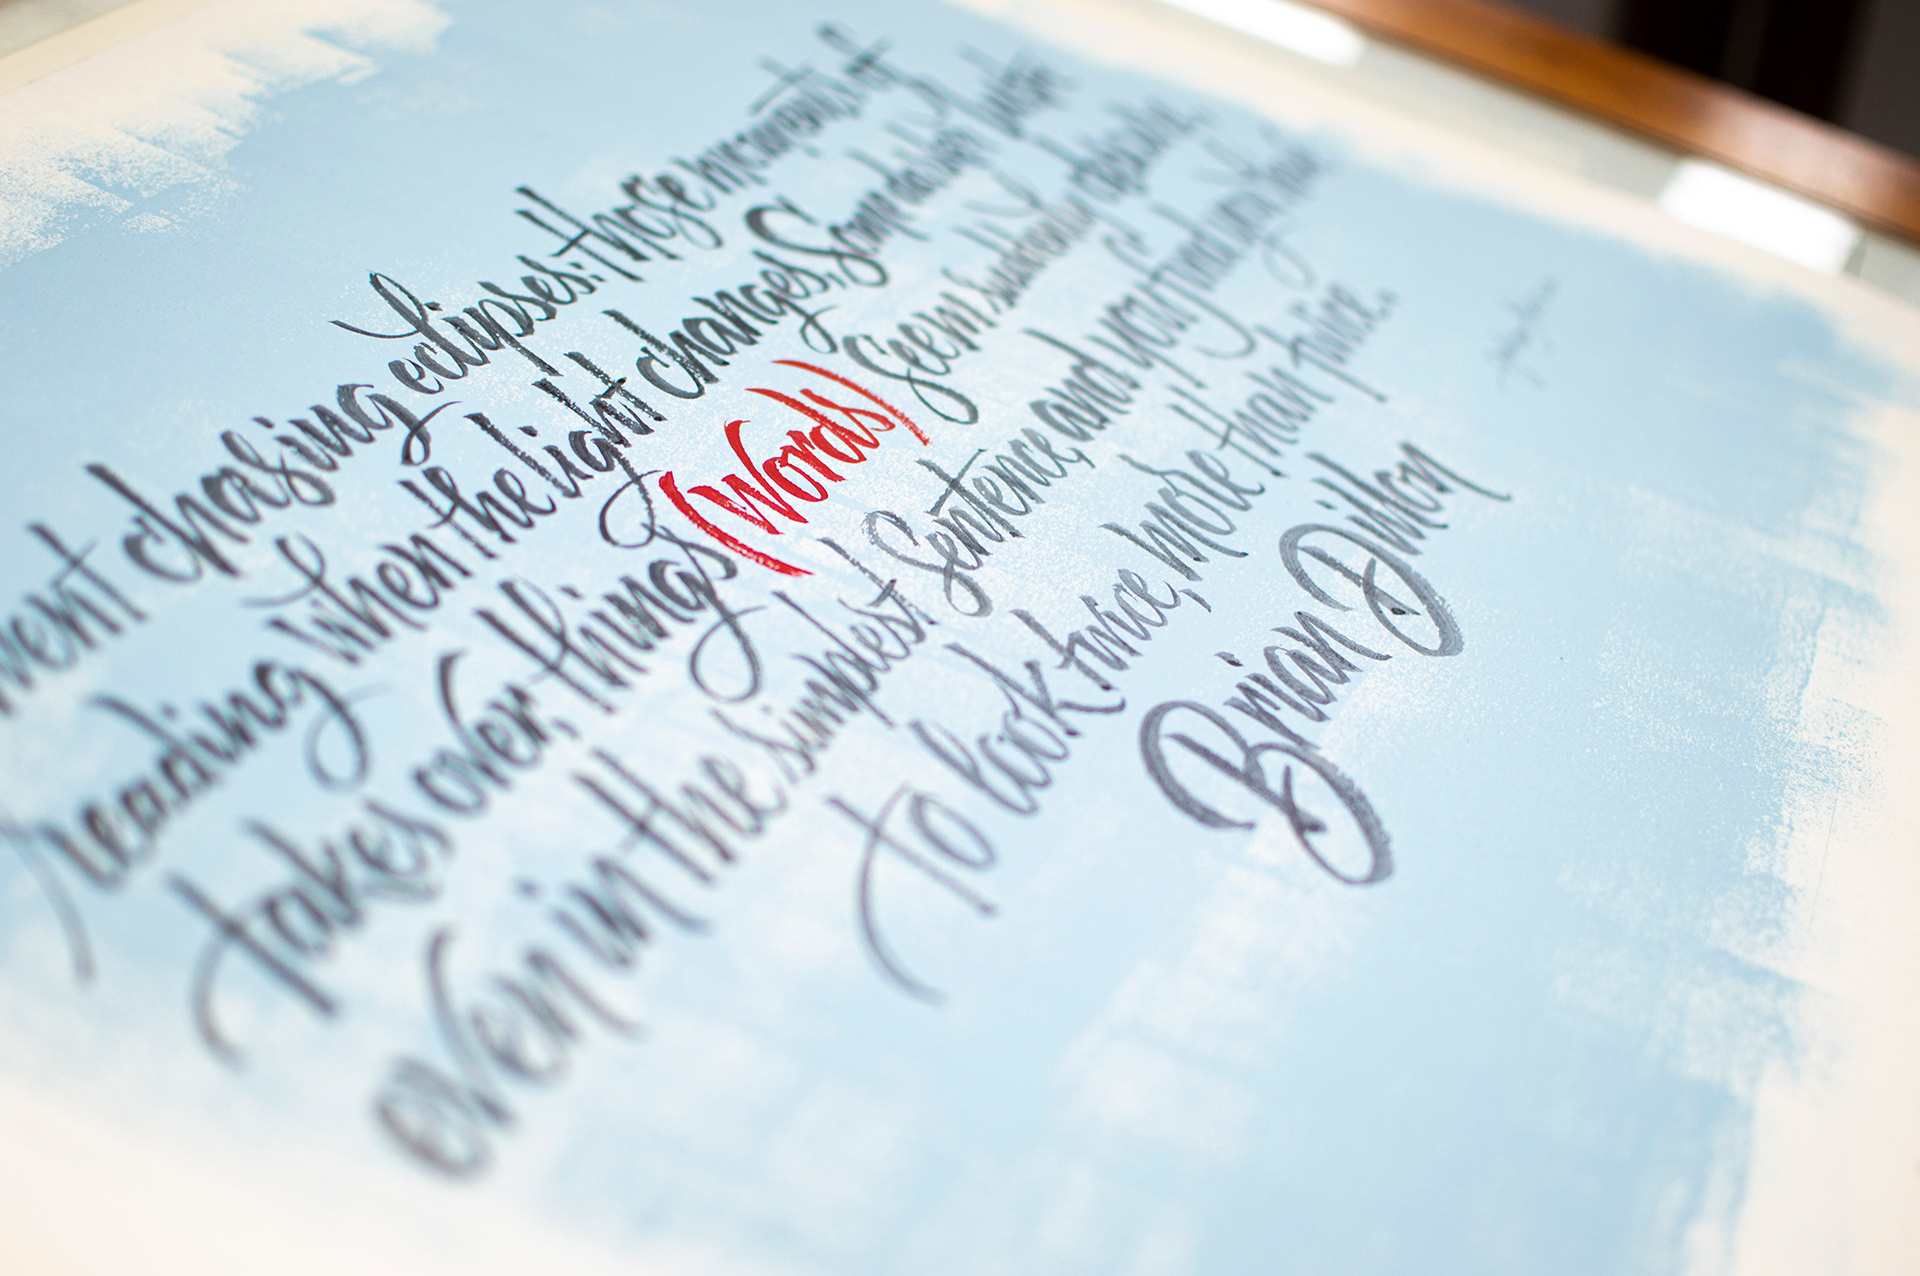 went chasing eclipses: those moments of
reading when the light changes, Some darker lustre
takes over, things (words) seem suddenly obscure,
even in the simplest sentence, and you find you have
to look twice, more than twice.
Brian Dillon